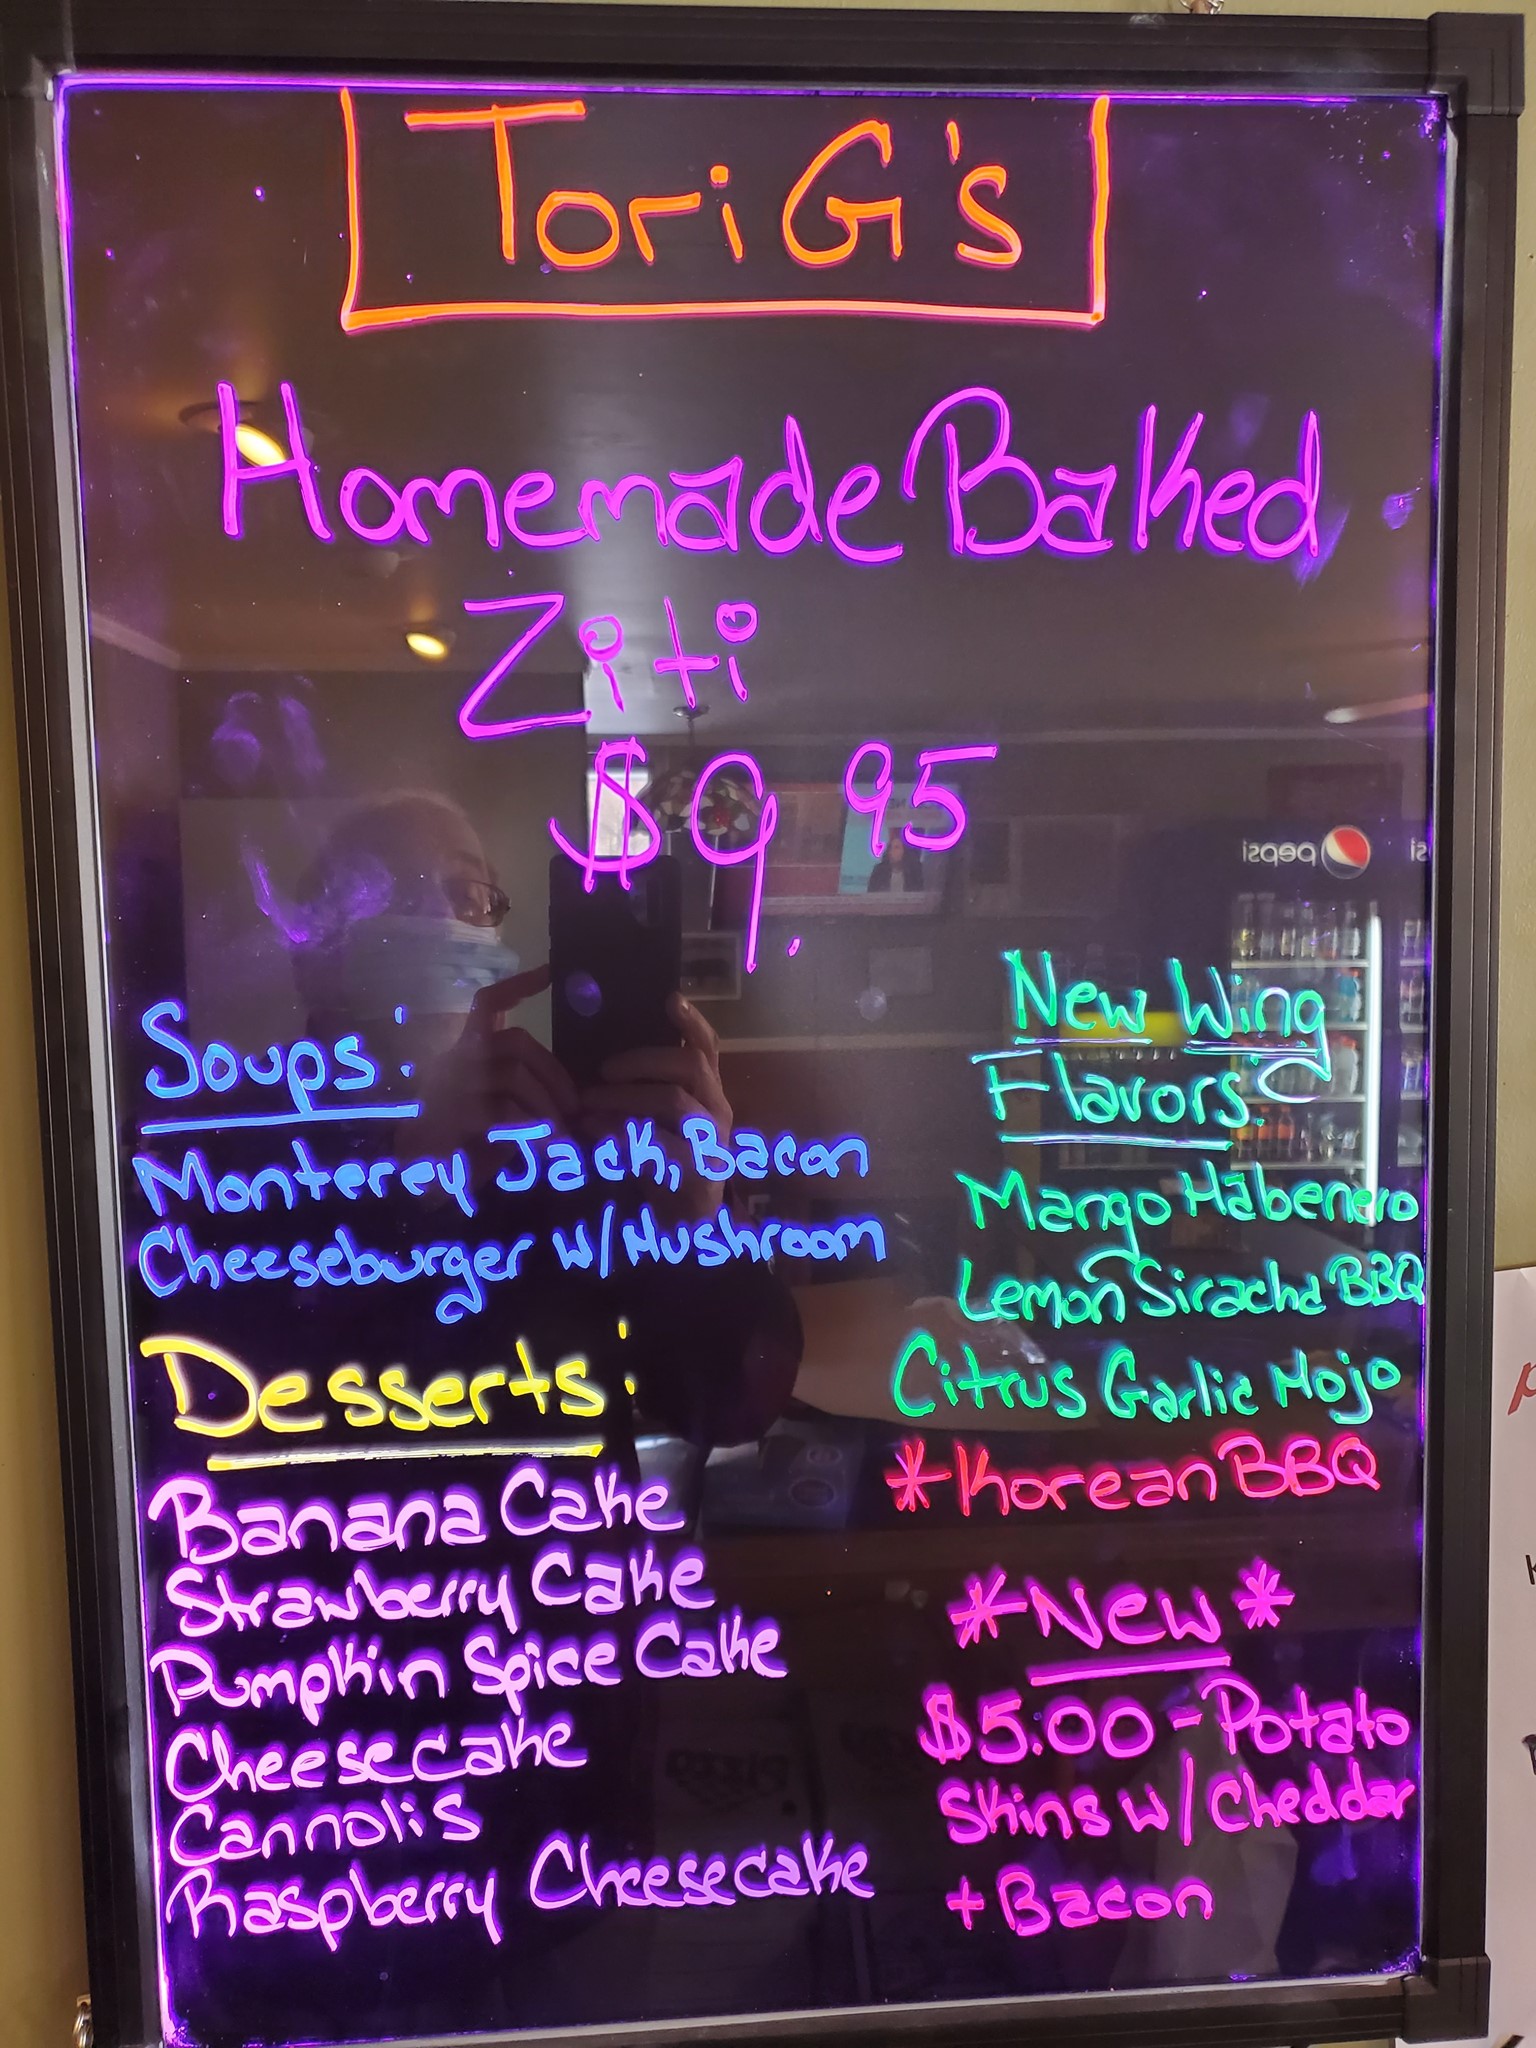 Tori G's
Homemade Baked
Ziti
$9.95
Soups:
Monterey Jack, Bacon
Cheeseburger w/Mushroom
Desserts:
Banana Cake
Strawberry Cake
Pumpkin Spice Cake
Cheesecake
Cannolis
Raspberry Cheesecake
New Wing
Flavors:
Mango Habenero
Lemon Siracha BBQ
Citrus Garlic Mojo
*Korean BBQ
*New*
$5.00 - Potato
Skins w/ Cheddar
+ Bacon
pepsi